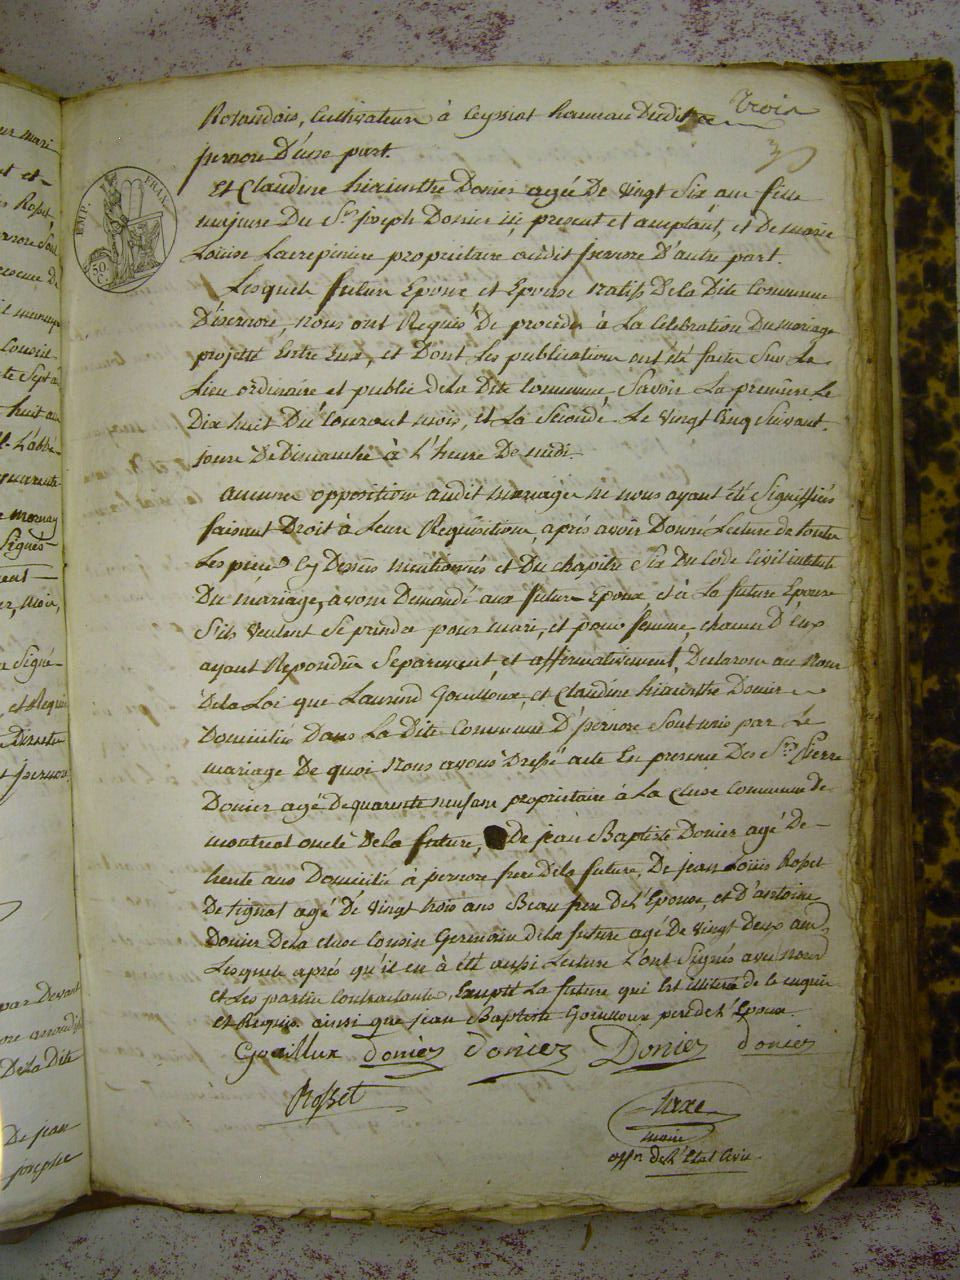 Trois
3
Rolandais, Cultivateur à Ceyssiat hameau Dudit
jzernore D'une part.
Et Claudine hiacinthe Donier agée De vingt Six ans fille
majeure Du Sr. joseph Donier icy present et acceptant, et De marie
Louise Lacrepiniere proprietaire audit jzernore D'autre part.
Lesquels futur Epoux et Epouse natifs Dela Dite Commune
Dizernore, nous ont Requis De proceder à La Celebration Du mariage
projetté Entre Eux, et Dont Les publications ont été faites Sur Le
Lieu ordinaire et public dela Dite Commune Savoir La première Le
Dix huit Du Courant mois, et La Seconde Le vingt Cinq Suivant.
jours De Dimanche à L'heure De midi.
aucune opposition audit mariage ne nous ayant été Signiffiés
faisant Droit à Leur Requisition, après avoir Donné Lecture de toutes
Les pieces Cy Dessus mentionnés et Du chapitre Six Du Code Civil intitulé
Du mariage, avons Demandé aux futur Epoux et à La future Epouse
S'ils veulent Se prendre pour mari, et pour femme, chacun D'eux
ayant Repondu Separement et affirmativement, Declarons au Nom
Dela Loi que Laurend Gouilloux, et Claudine hiacinthe Donier
Domiciliés Dans La Dite Commune D'jzernore Sont unis par Le
mariage De quoi Nous avons Dressé acte En presence Des Srs. Pierre
Donier agé Dequarente neuf ans proprietaire à La Cluse Commune de
montreal oncle Dela future, De jean Baptiste Donier agé De
trente ans Domicilié à jzernore frere Dela future, De jean Louis Rosset
De tignat agé De vingt trois ans Beau frere de L'Epouse, et D'antoine
Donier Dela cluse Cousin Germain Dela future agé De vingt Deux ans
Lesquels après qu'il en à été aussi Lecture L'ont Signés avec nous
et Les parties Contractantes, Excepté La future qui Est illiterée de ce enquise
et Requise. ainsi que jean Baptiste Gouilloux pere de L'Epoux.
Gouillux donier donier Donier donier
Rosset
maire
offr. de L'Etat Civil
EMP. FRAN.
50
C.